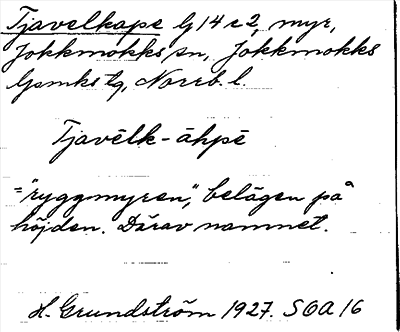 Tjavelkape G 14 c 2, myr,
Jokkmokks sn, Jokkmokks
lpmks tg, Norrb. l.
Tjavēlk-āhpē
="ryggmyren", belägen på
höjden. Därav namnet.
H. Grundström 1927. SOA 16